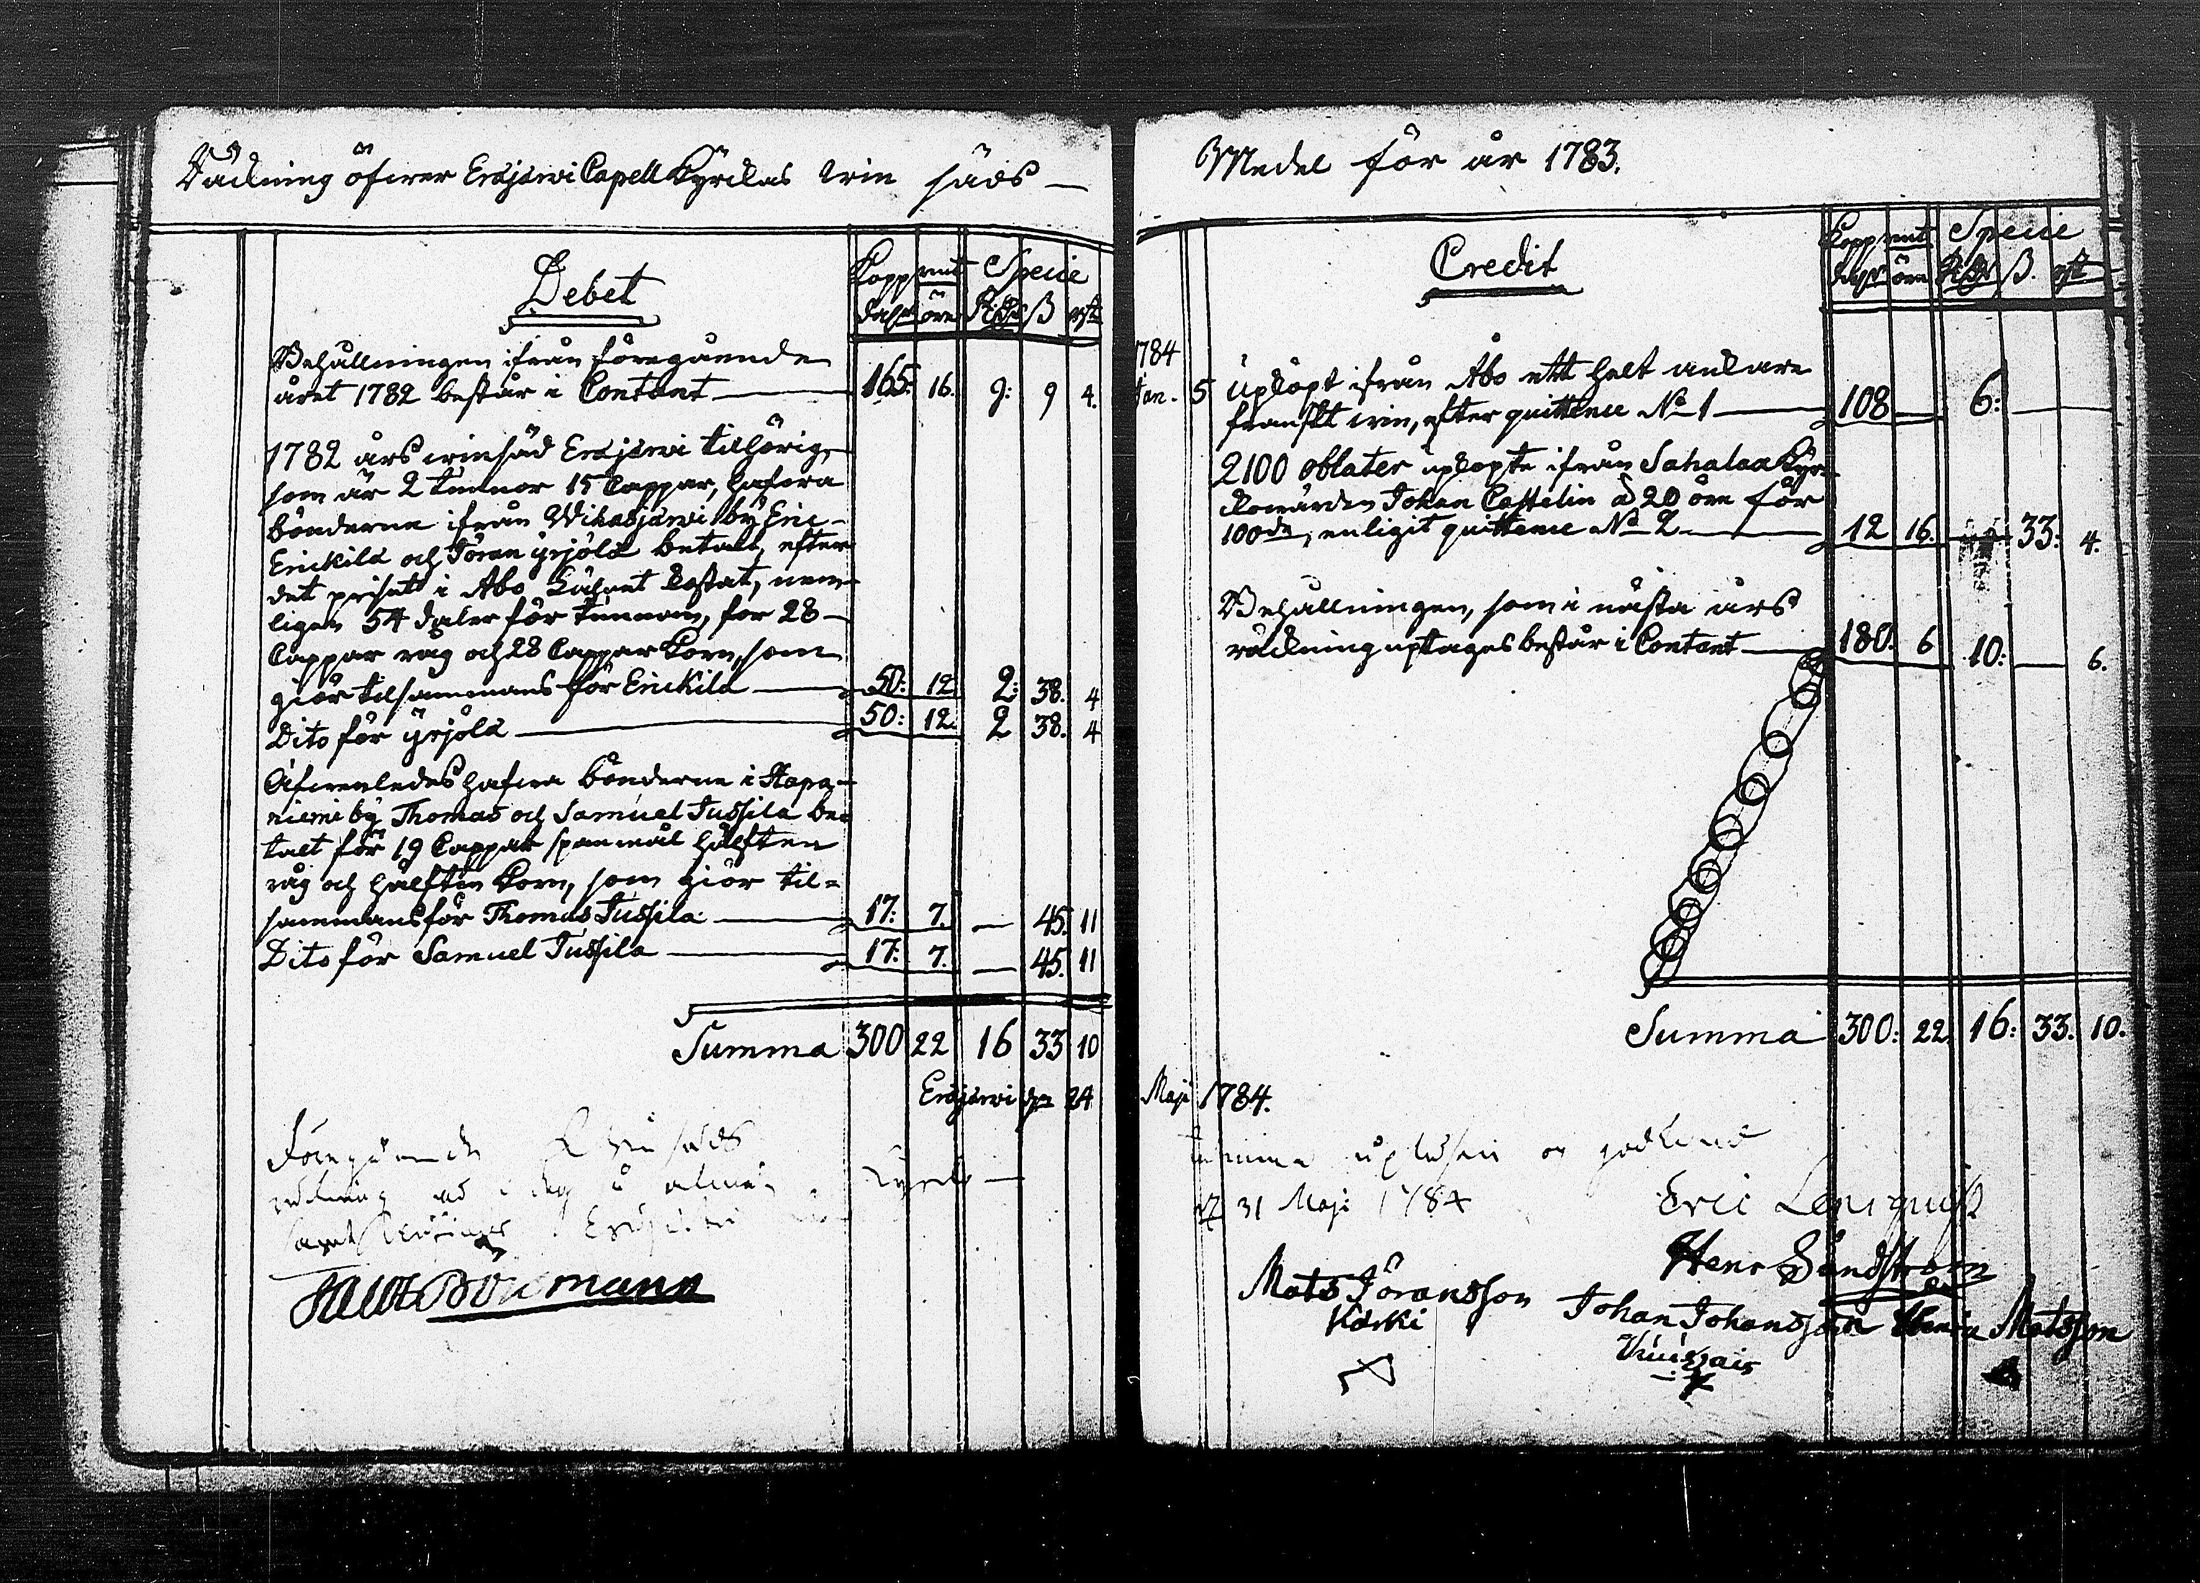 Räckning öfwer Eräjärwi Capell Kyrckas win säds
Medel för år 1783.
Debet
Kopp mnt Specie
dalr öre Rdr ß rst
Behållningen ifrån föregående
året 1782 består i Contant 165: 16. 9: 9 4.
1782 års winsäd Eräjärwi tilhörig,
som är 2 tunnor 15 Cappar, hafwa
bönderne ifrån Wihasjärwi by Eric
Erickilä och Jöran Yrjölä betalt, efter
det priset i Åbo Lähnet kostat, nem-
ligen 54 daler för tunnan, for 28
Cappar råg och 28 Cappar Korn, som
giör tilsammans för Erickilä 50: 12 2: 38. 4
Dito för Yrjölä 50: 12. 2 38. 4
Äfwenledes hafwa bönderne i Hapa-
niemi by Thomas och Samuel Jussila be-
talt för 19 Cappar spanmål hälften
råg och hälften Korn, som giör til=
sammans för Thomas Jussila 17: 7. — 45. 11
Dito för Samuel Jussila 17: 7. — 45. 11
Summa 300 22 16 33 10
Credit
Kopp mnt Specie
dalr öre Rdr ß. rst
1784
Jan. 5 Upköpt ifrån Åbo ett helt ankare
franskt win, efter quittence No 1 108 — 6: — —
2100 oblater upköpte ifrån Sahalax Kyr-
kowärden Johan Castelin à 20 öre för
100de, enligit quittence No 2 12 16. 33: 4.
Behållningen, som i nästa års
räckning uptages består i Contant 180. 6 10: — 6.
Summa 300: 22 16: 33. 10.
Eräjärwi den 24 Maji 1784.
Föregående win säds
räkning i dag
uplesen och godkend
31 Maji 1784
Eric Lencquist
Henr Sandstrom
Mats Jöransson
Koski
Johan Johansson
Matsson